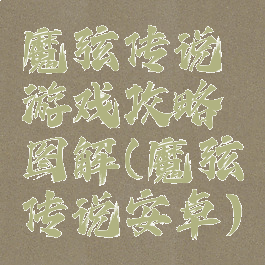 魔弦传说
游戏攻略
图解(魔弦
传说安卓)